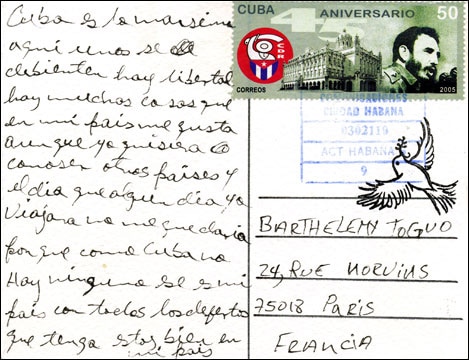 Cuba es lo marsimo
aqui uno se
desienten hay libertad
hay muchas cosas que
en mi pais me gusta
aunque yo quisiera
conoser otros paises y
el dia que algun dia yo
Viajara no me quedaria
porque como Cubano
Hay ninguno se mi
pais con todos los defertos
que tenga estoy bien en
mi pais
CUBA 45 ANIVERSARIO 50
CDR
CORREOS 2005
CIUDAD HABANA
0302119
ACT HABANA
9
BARTHELEMY TOGUO
24, RUE NORVINS
75018 PARIS
FRANCIA